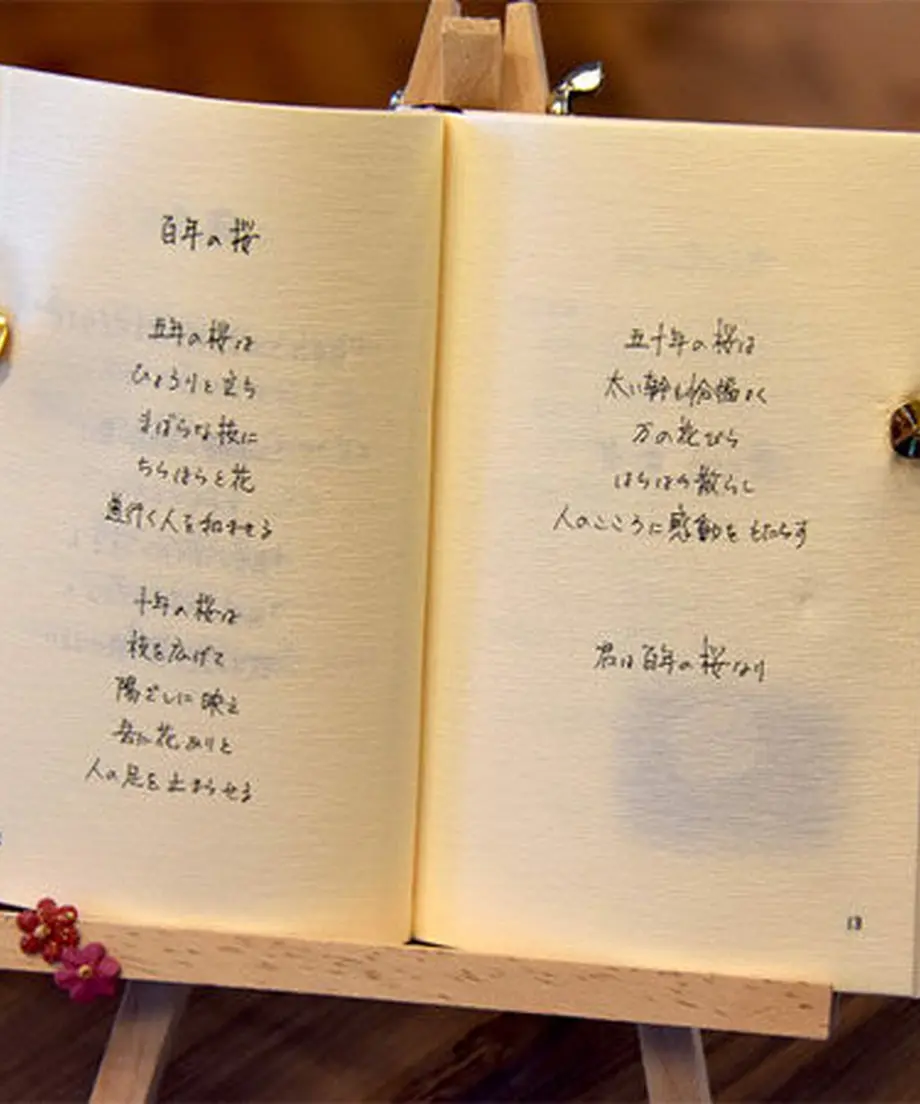 百年の桜
五年の桜は
ひょろりと立ち
まばらな枝に
ちらほらと花
道行く人を和ませる
十年の桜は
枝を広げて
陽ざしに映え
花ありと
人の足を止まらせる
五十年の桜は
太い幹も
万の花びら
はらはら散らし
人のこころに感動をもたらす
君は百年の桜なり
13